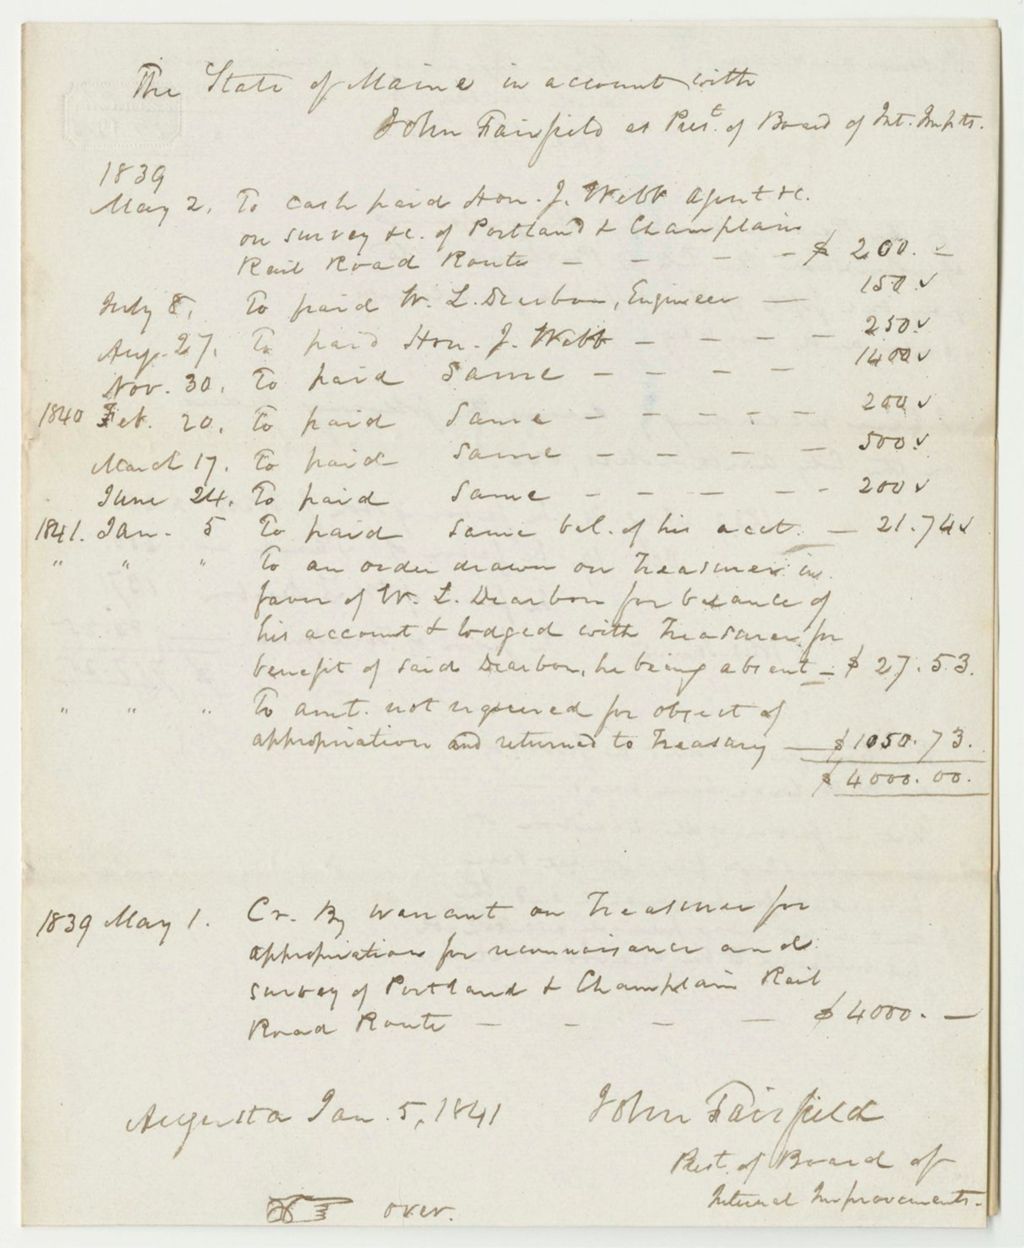 The State of Maine in account with
John Fairfield as Prest. of Board of Int. Impts.
1839
May 2. To cash paid Hon. J. Webb Agent &c.
on survey &c. of Portland & Champlain
Rail Road Route — — — — $ 200. —
July 8. To paid W. L. Dearbon, Engineer — 150 ✓
Aug. 27. To paid Hon. J. Webb — — — — 250 ✓
Nov. 30. To paid Same — — — — — 1400 ✓
1840 Feb. 20. To paid Same — — — — — 200 ✓
March 17. To paid Same — — — — — 500 ✓
June 24. To paid Same — — — — — 200 ✓
1841. Jan. 5 To paid same bal. of his acct. — 21.74 ✓
" " " To an order drawn on Treasurer in
favor of W. L. Dearbon for balance of
his account & lodged with Treasurer for
benefit of said Dearbon, he being absent — $ 27.53.
" " " To amt. not required for object of
appropriation and returned to Treasury — $1050.73.
$ 4000.00.
1839 May 1. Cr. By warrant on Treasurer for
appropriation for reconnoisance and
survey of Portland & Champlain Rail
Road Route — — — — $ 4000. —
Augusta Jan. 5, 1841 John Fairfield
Prest. of Board of
Internal Improvements.
over.